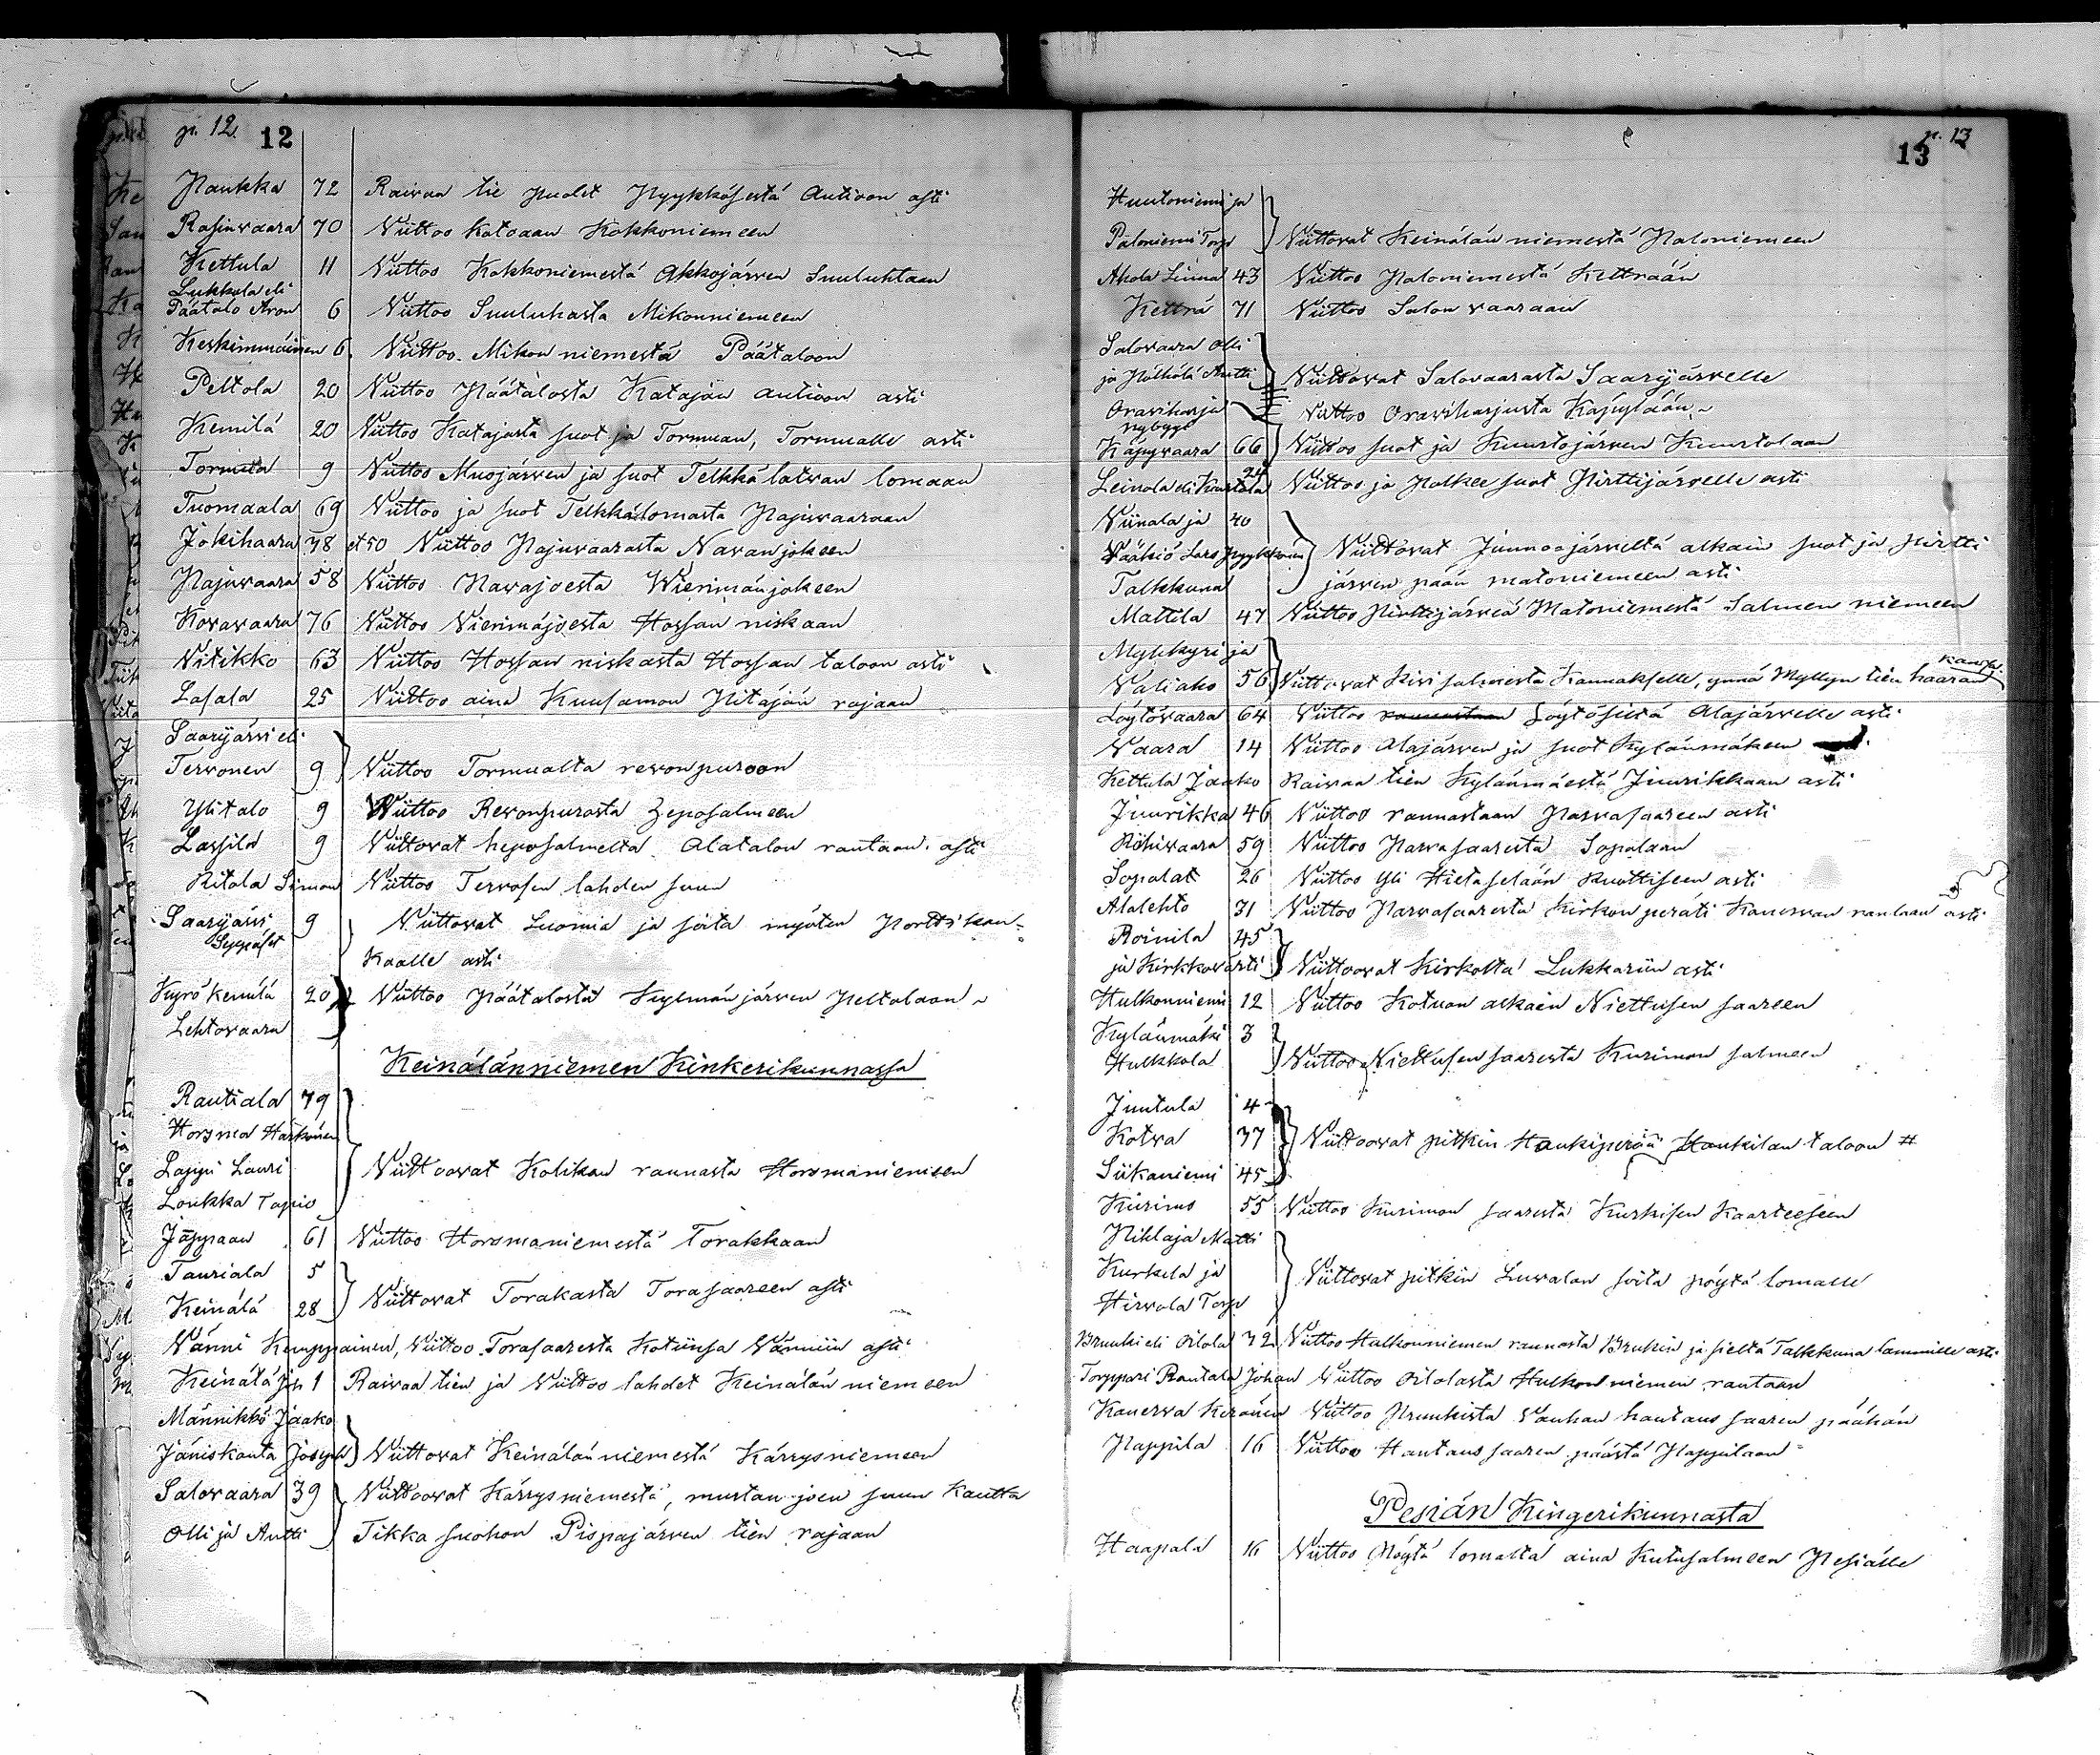 p. 12. 12
Paukka 72 Raivaa tie puolet Pyykkösestä Autioon asti
Rasinvaara 70 Viittoo kotoaan Kokkoniemeen
Kettula 11 Viittoo Kokkoniemestä Akkojärven Suuluhtaan
Lukkola eli
Päätalo Aron 6 Viittoo Suuluhasta Mikonniemeen
Keskimmäinen 6. Viittoo Mikon niemestä Päätaloon
Peltola 20 Viittoo Päätalosta Katajan autioon asti
Kemilä 20 Viittoo Katajasta suot ja Tormuan, Tormualle asti
Tormula 9 Viittoo Muojärven ja suot Telkkälatvan lomaan
Tuomaala 69 Viittoo ja suot Telkkälomasta Pajuvaaraan
Jokihaara 38 et 50 Viittoo Pajuvaarasta Navanjokeen
Pajuvaara 58 Viittoo Navajoesta Wierimänjokeen
Kovavaara 76 Viittoo Vierimäjoesta Hossan niskaan
Vitikko 63 Viittoo Hossan niskasta Hossan taloon asti
Lasala 25 Viittoo aina Kuusamon Pitäjän rajaan
Saarijärvi eli
Tervonen 9 Viittoo Tormualta revonpuroon
Ylitalo 9 Viittoo Revonpurosta Heposalmeen
Lassila 9 Viittovat heposalmelta Alatalon rantaan asti
Ritola Simon Viittoo Tervosen lahden suun
Saarijärvi 9 Viittovat Luomia ja siitä myöten Porttikan-
Seppäset
kaalle asti
Kyrö kemilä 20 Viittoo Päätalosta Kylmänjärven Peltolaan
Lehtovaara
Keinälänniemen Kinkerikunnassa
Rautiala 79
Horsma Härkönen
Lappi Lauri Viittoovat Kolikan rannasta Horsmaniemeen
Loukka Tapio
Jäppään 61 Viittoo Horsmaniemestä Torakkaan
Tauriala 5
Keinälä 28 Viittovat Torakasta Torasaareen asti
Vänni Kemppainen, Viittoo Torasaaresta Kotiinsa Vänniin asti
Keinälä Joh 1 Raivaa tien ja Viittoo lahdet Keinälän niemeen
Männikkö Jaako
Jäniskanta Joseph Viittovat Keinälänniemestä Kärrysniemeen
Salovaara 39 Viittoovat Kärrysniemestä, mustan joen suun kautta
Olli ja Antti Tikka suohon Pispajärven tien rajaan
p. 13 13
Huutoniemi ja
Paloniemi Torp Viittovat Keinälän niemestä Paloniemeen
Ahola Linna 43 Viittoo Paloniemestä Ketträän
Ketträ 71 Viittoo Salon vaaraan
Salovaara Olli
ja Pölhölä Antti Viittovat Salovaarasta Saarijärvelle
Oraviharju Viittoo Oraviharjusta Käpylään
nybygg
Käpyvaara 66 Viittoo suot ja Kuustojärven Kuustolaan
Leinola eli Kuustola 24 Viittoo ja Polkee suot Pirttijärvelle asti
Viinala ja 40
Vääkiö Lars Pyykkönen Viittovat Juunoojärveltä alkain suot ja pirtti
Talkkuna järven pään matoniemeen asti
Mattila 47 Viittoo Pirttijärveä Matoniemestä Salmen niemeen
Mykkyri ja
Väliaho 56 Viittovat Kivi salmesta Kannakselle, ynnä Myllyn tien haaran kanssa
Löytövaara 64 Viittoo rannastaan Löytösiltä Alajärvelle asti
Vaara 14 Viittoo Alajärven ja suot Kylänmäkeen
Kettula Jaako Raivaa tien Kylänmäestä Juurikkaan asti
Juurikka 46 Viittoo rannastaan Parvasaareen asti
Röhivaara 59 Viittoo Parvasaaresta Sopalaan
Sopalat 26 Viittoo yli Hietaselän Ruottiseen asti
Alalehto 31 Viittoo Parvasaaresta Kirkon peräti Kanervan rantaan asti
Roinila 45
ja Kirkkovärti Viittoovat Kirkolta Lukkariin asti
Hulkonniemi 12 Viittoo Kotoan alkain Niettusen saareen
Kylänmäki 3
Hulkkola Viittoo Niettusen saaresta Kurimon salmeen
Juutula 4
Kotva 37 Viittoovat pitkin Haukiperää Haukilan taloon #
Siikaniemi 45
Kurimo 55 Viittoo Kurimon saaresta Kurkisen Kaarteeseen
Piklaja Matti
Kurkela ja Viittovat pitkin Luvalan siitä pöytä lomalle
Hirvola Torp
Bruuki eli Oilola 32 Viittoo Hulkonniemen rannasta Brukin ja sieltä Talkkuna lammille asti
Torppari Rantala Johan Viittoo Oilolasta Hulkonniemen rantaan
Kanerva Keränen Viittoo Pruukista Vanhan hautaus saaren päähän
Pappila 16 Viittoo Hautaus saaren päästä Pappilaan
Pesiän Kingerikunnasta
Haapala 16 Viittoo Pöytä lomalta aina Kutusalmeen Pesiälle